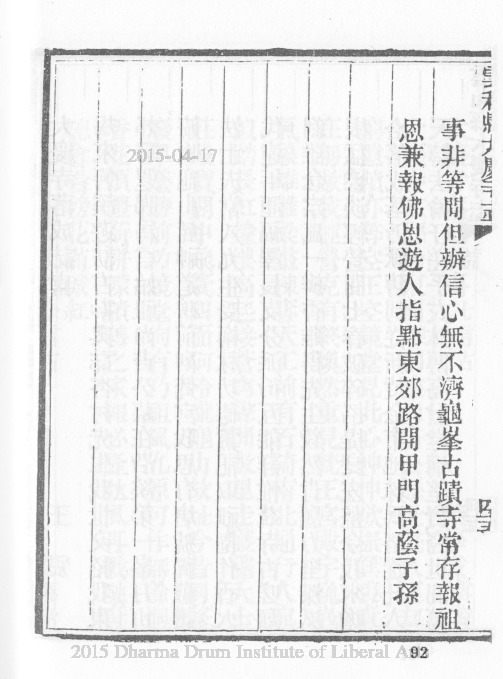 事非等閒但辦信心無不濟龜峯古蹟寺常存報祖
恩兼報佛恩遊人指點東郊路開甲門高蔭子孫
四五
92
2015-04-17
2015 Dharma Drum Institute of Liberal Arts